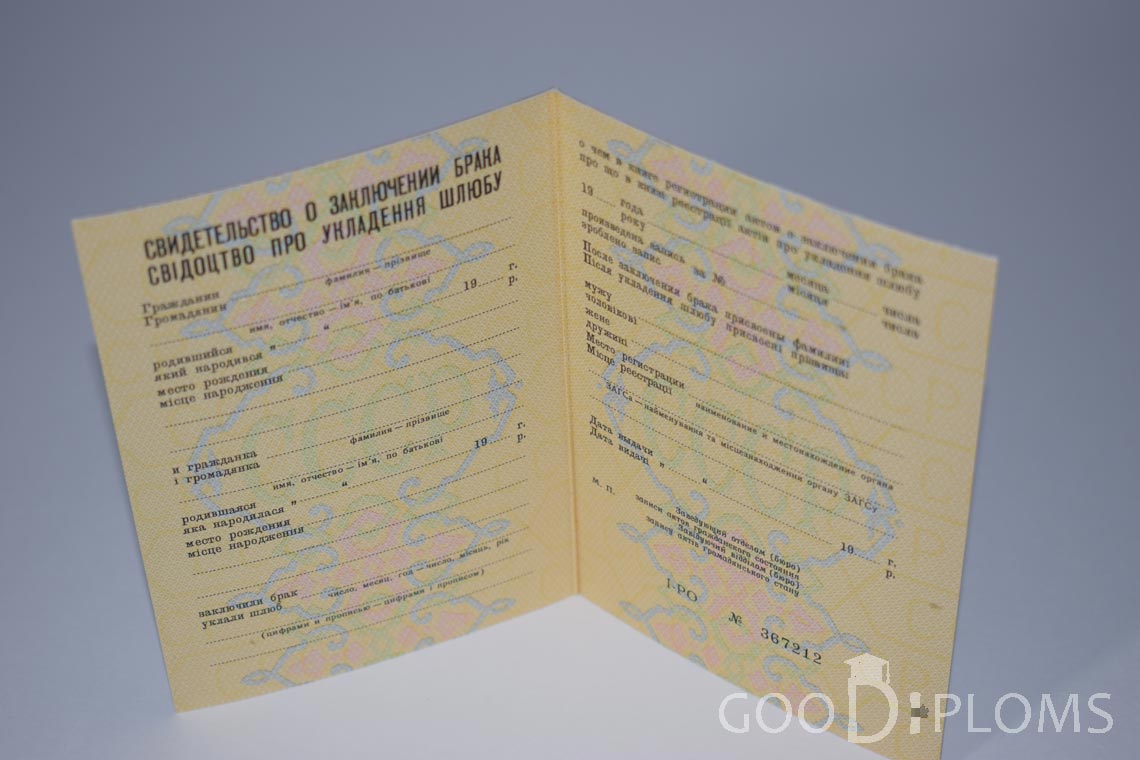 СВИДЕТЕЛЬСТВО О ЗАКЛЮЧЕНИИ БРАКА
СВІДОЦТВО ПРО УКЛАДЕННЯ ШЛЮБУ
Гражданин
Громадянин
фамилия — прізвище
имя, отчество — ім'я, по батькові
родившийся „ “ 19 г.
який народився р.
место рождения
місце народження
и гражданка
і громадянка
фамилия — прізвище
имя, отчество — ім'я, по батькові
родившаяся „ “ 19 г.
яка народилася р.
место рождения
місце народження
заключили брак
уклали шлюб
число, месяц, год — число, місяць, рік
(цифрами и прописью — цифрами і прописом)
о чем в книге регистрации актов о заключении брака
про що в книзі реєстрації актів про укладення шлюбу
19 года месяца числа
року місяця числа
произведена запись за №
зроблено запис
После заключения брака присвоены фамилии:
Після укладення шлюбу присвоєні прізвища:
мужу
чоловікові
жене
дружині
Место регистрации
Місце реєстрації
наименование и местонахождение органа
ЗАГСа — найменування та місцезнаходження органу ЗАГСу
Дата выдачи „ “ 19 г.
Дата видачі р.
М. П.
Заведующий отделом (бюро)
записи актов гражданского состояния
Завідуючий відділом (бюро)
запису актів громадянського стану
І-РО № 367212
GOODIPLOMS